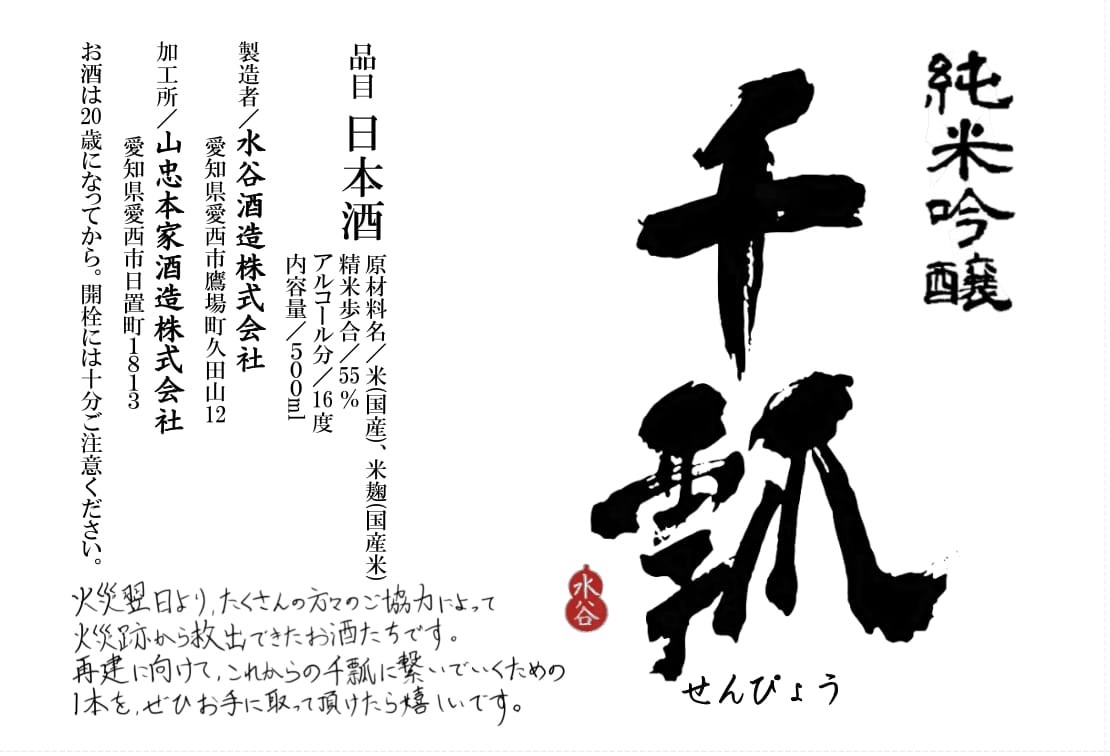 純米吟醸
千瓢
せんぴょう
水谷
品目 日本酒
原材料名／米(国産)、米麹(国産米)
精米歩合／55%
アルコール分／16度
内容量／500ml
製造者／水谷酒造株式会社
愛知県愛西市鷹場町久田山12
加工所／山忠本家酒造株式会社
愛知県愛西市日置町1813
お酒は20歳になってから。開栓には十分ご注意ください。
火災翌日より、たくさんの方々のご協力によって
火災跡から救出できたお酒たちです。
再建に向けて、これからの千瓢に繋いでいくための
1本を、ぜひお手に取って頂けたら嬉しいです。